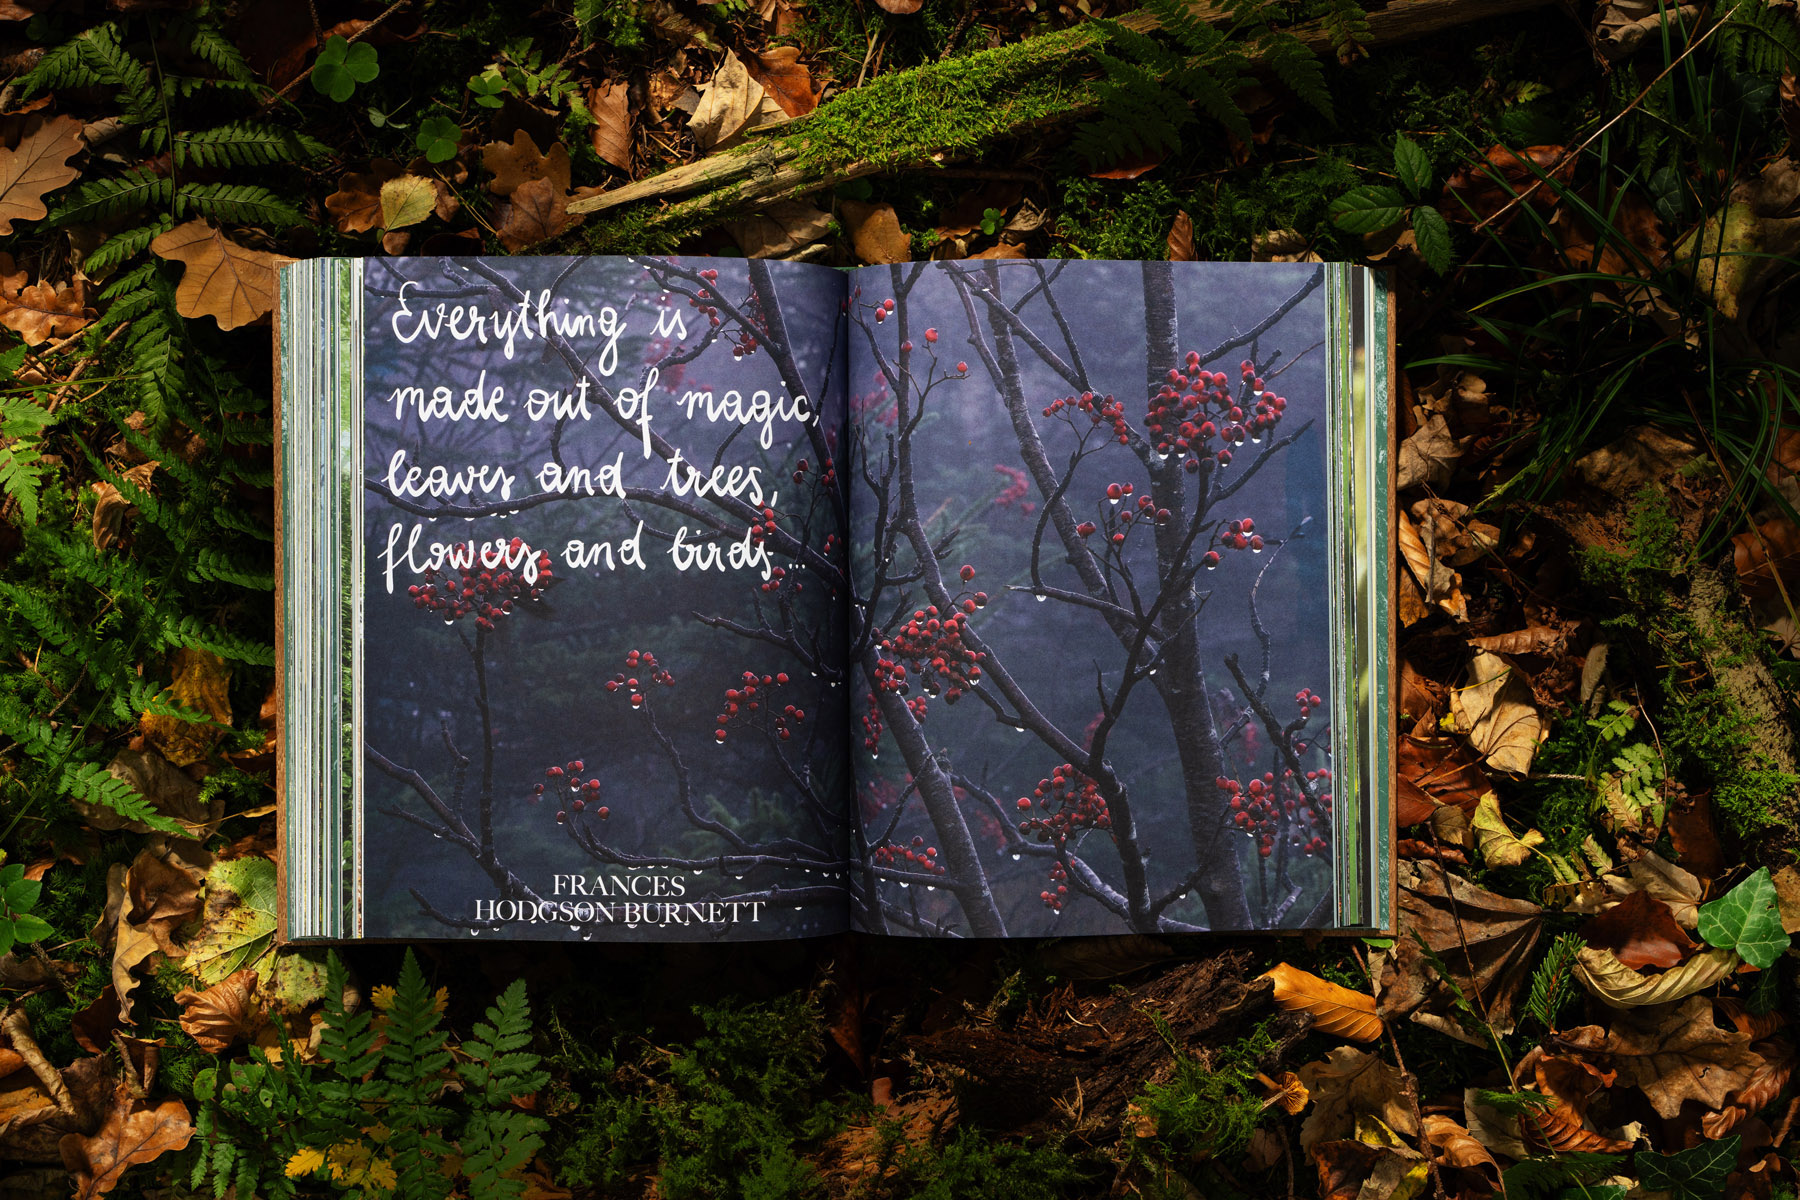 Everything is
made out of magic,
leaves and trees,
flowers and birds...
FRANCES
HODGSON BURNETT